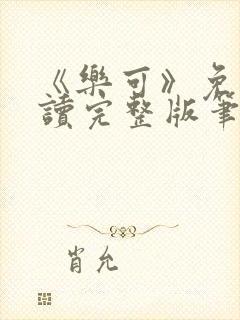 《樂可》免
讀完整版筆
肖允